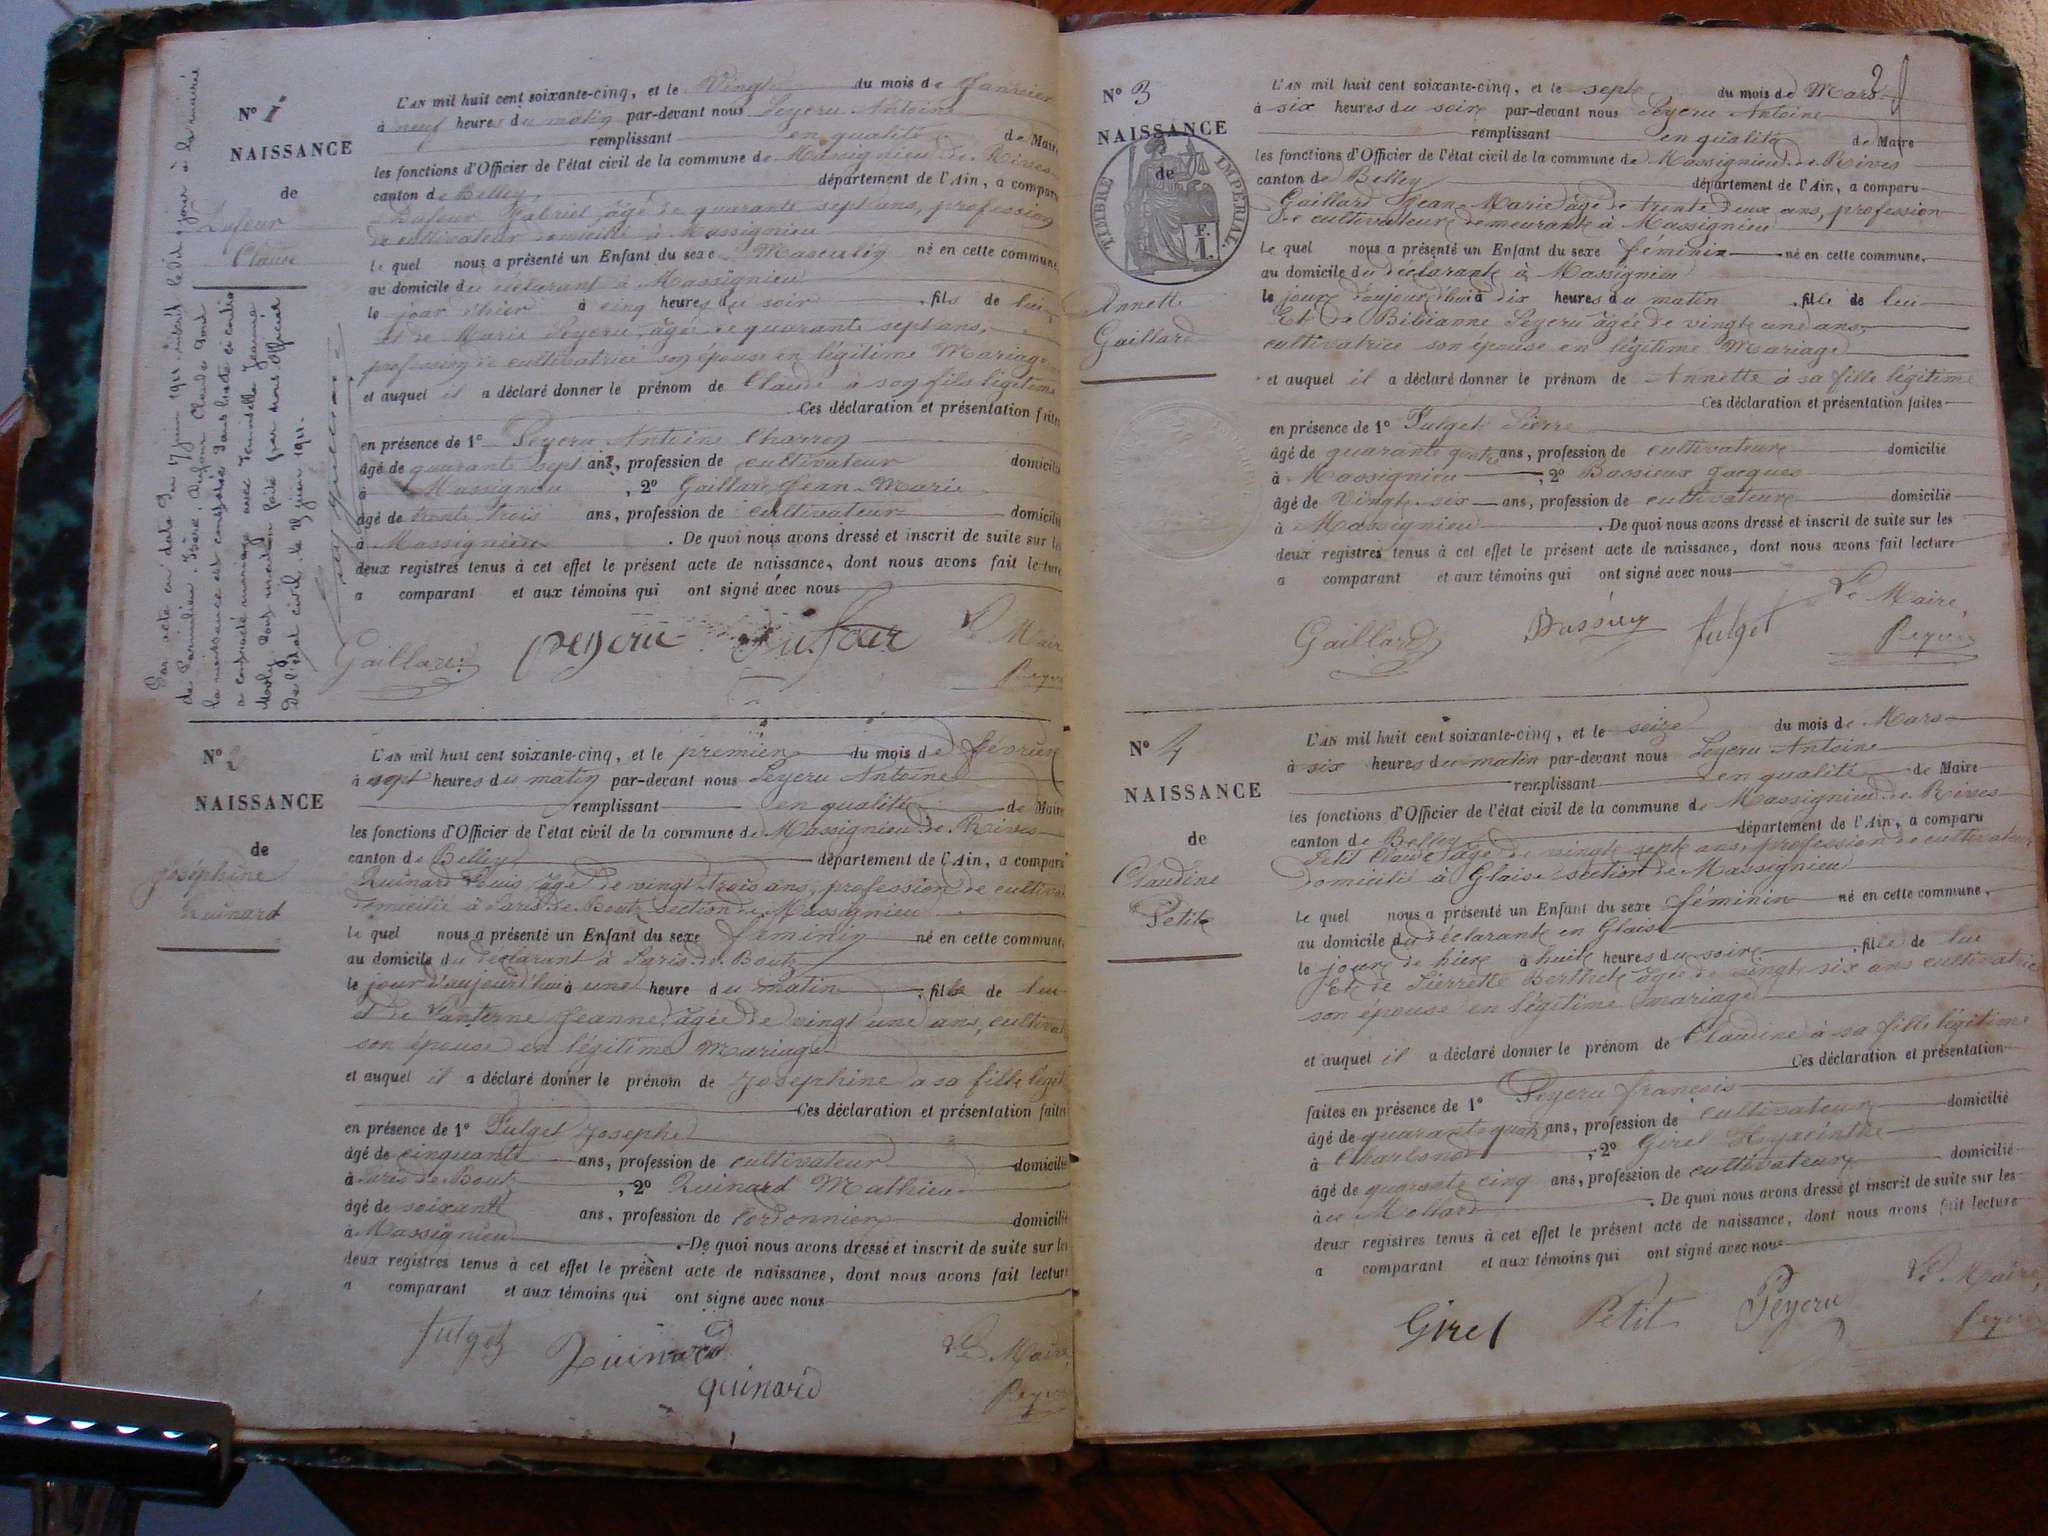 N° 1
NAISSANCE
de
Dufour
Claude
L'AN mil huit cent soixante-cinq, et le Vingt du mois de Janvier
à neuf heures du matin par-devant nous Peyeru Antoine
remplissant en qualité de Maire
les fonctions d'Officier de l'état civil de la commune de Massignieu de Rives
canton de Belley département de l'Ain, a comparu
Dufour Gabriel âgé de quarante sept ans, profession
de cultivateur domicilié à Massignieu
le quel nous a présenté un Enfant du sexe Masculin né en cette commune,
au domicile du déclarant à Massignieu
le jour d'hier à cinq heures du soir , fils de lui
et de Marie Peyeru âgée de quarante sept ans,
profession de cultivatrice son épouse en légitime Mariage
et auquel il a déclaré donner le prénom de Claude à son fils légitime
Ces déclaration et présentation faites
en présence de 1° Peyeru Antoine Charron
âgé de quarante sept ans, profession de cultivateur domicilié
à Massignieu , 2° Gaillard Jean-Marie
âgé de trente trois ans, profession de cultivateur domicilié
à Massignieu . De quoi nous avons dressé et inscrit de suite sur les
deux registres tenus à cet effet le présent acte de naissance, dont nous avons fait lecture
a comparant et aux témoins qui ont signé avec nous
Gaillard Peyeru Dufour Le Maire
Peyeru
Par acte en date du 17 juin 1911 inscrit le dit jour à la mairie
la naissance est
a contracté mariage avec
de l'état civil, le 23 juin 1911.
N° 2
NAISSANCE
de
Joséphine
Quinard
L'AN mil huit cent soixante-cinq, et le premier du mois de février
à sept heures du matin par-devant nous Peyeru Antoine
remplissant en qualité de Maire
les fonctions d'Officier de l'état civil de la commune de Massignieu de Rives
canton de Belley département de l'Ain, a comparu
Quinard Louis âgé de vingt-trois ans, profession de cultivat
domicilié à Paris de Bout section de Massignieu
le quel nous a présenté un Enfant du sexe féminin né en cette commune,
au domicile du déclarant à Paris de Bout
le jour d'aujourd'hui à une heure du matin , fille de lui
et de Lanterne Jeanne, âgée de vingt une ans, cultivat
son épouse en légitime Mariage
et auquel il a déclaré donner le prénom de Joséphine à sa fille légit
Ces déclaration et présentation faites
en présence de 1° Fulget Joseph
âgé de cinquante ans, profession de cultivateur domicilié
à Paris de Bout , 2° Quinard Mathieu
âgé de soixante ans, profession de Cordonnier domicilié
à Massignieu . De quoi nous avons dressé et inscrit de suite sur les
deux registres tenus à cet effet le présent acte de naissance, dont nous avons fait lecture
a comparant et aux témoins qui ont signé avec nous
fulget Quinard Le Maire
quinard Peyeru
N° 3
NAISSANCE
de
TIMBRE IMPERIAL
F.
1.
Annette
Gaillard
L'AN mil huit cent soixante-cinq, et le sept du mois de Mars
à six heures du soir par-devant nous Peyeru Antoine
remplissant en qualité de Maire
les fonctions d'Officier de l'état civil de la commune de Massignieu de Rives
canton de Belley département de l'Ain, a comparu
Gaillard Jean-Marie âgé de trente deux ans, profession
de cultivateur demeurant à Massignieu
le quel nous a présenté un Enfant du sexe féminin né en cette commune,
au domicile du déclarant à Massignieu
le jour d'aujourd'hui à dix heures du matin , fille de lui
Et de Bibianne Peyeru âgée de vingt une ans,
cultivatrice son épouse en légitime Mariage
et auquel il a déclaré donner le prénom de Annette à sa fille légitime
Ces déclaration et présentation faites
en présence de 1° Fulget Pierre
âgé de quarante quatre ans, profession de cultivateur domicilié
à Massignieu , 2° Bassieux Jacques
âgé de Vingt-six ans, profession de cultivateur domicilié
à Massignieu . De quoi nous avons dressé et inscrit de suite sur les
deux registres tenus à cet effet le présent acte de naissance, dont nous avons fait lecture
a comparant et aux témoins qui ont signé avec nous
Gaillard fulget Le Maire,
Peyeru
N° 4
NAISSANCE
de
Claudine
Petit
L'AN mil huit cent soixante-cinq, et le seize du mois de Mars
à six heures du matin par-devant nous Peyeru Antoine
remplissant en qualité de Maire
les fonctions d'Officier de l'état civil de la commune de Massignieu de Rives
canton de Belley département de l'Ain, a comparu
Petit Claude âgé de vingt sept ans, profession de cultivateur
domicilié à Glaise section de Massignieu
le quel nous a présenté un Enfant du sexe féminin né en cette commune,
au domicile du déclarant en Glaise
le jour de hier à huit heures du soir , fille de lui
Et de Pierrette Berthet âgée de vingt six ans cultivatrice
son épouse en légitime mariage
et auquel il a déclaré donner le prénom de Claudine à sa fille légitime
Ces déclaration et présentation
faites en présence de 1° Peyeru françois
âgé de quarante quatre ans, profession de cultivateur domicilié
à , 2° Girel Hyacinthe
âgé de quarante cinq ans, profession de cultivateur domicilié
à Mollard . De quoi nous avons dressé et inscrit de suite sur les
deux registres tenus à cet effet le présent acte de naissance, dont nous avons fait lecture
a comparant et aux témoins qui ont signé avec nous
Girel Petit Peyeru Le Maire,
Peyeru